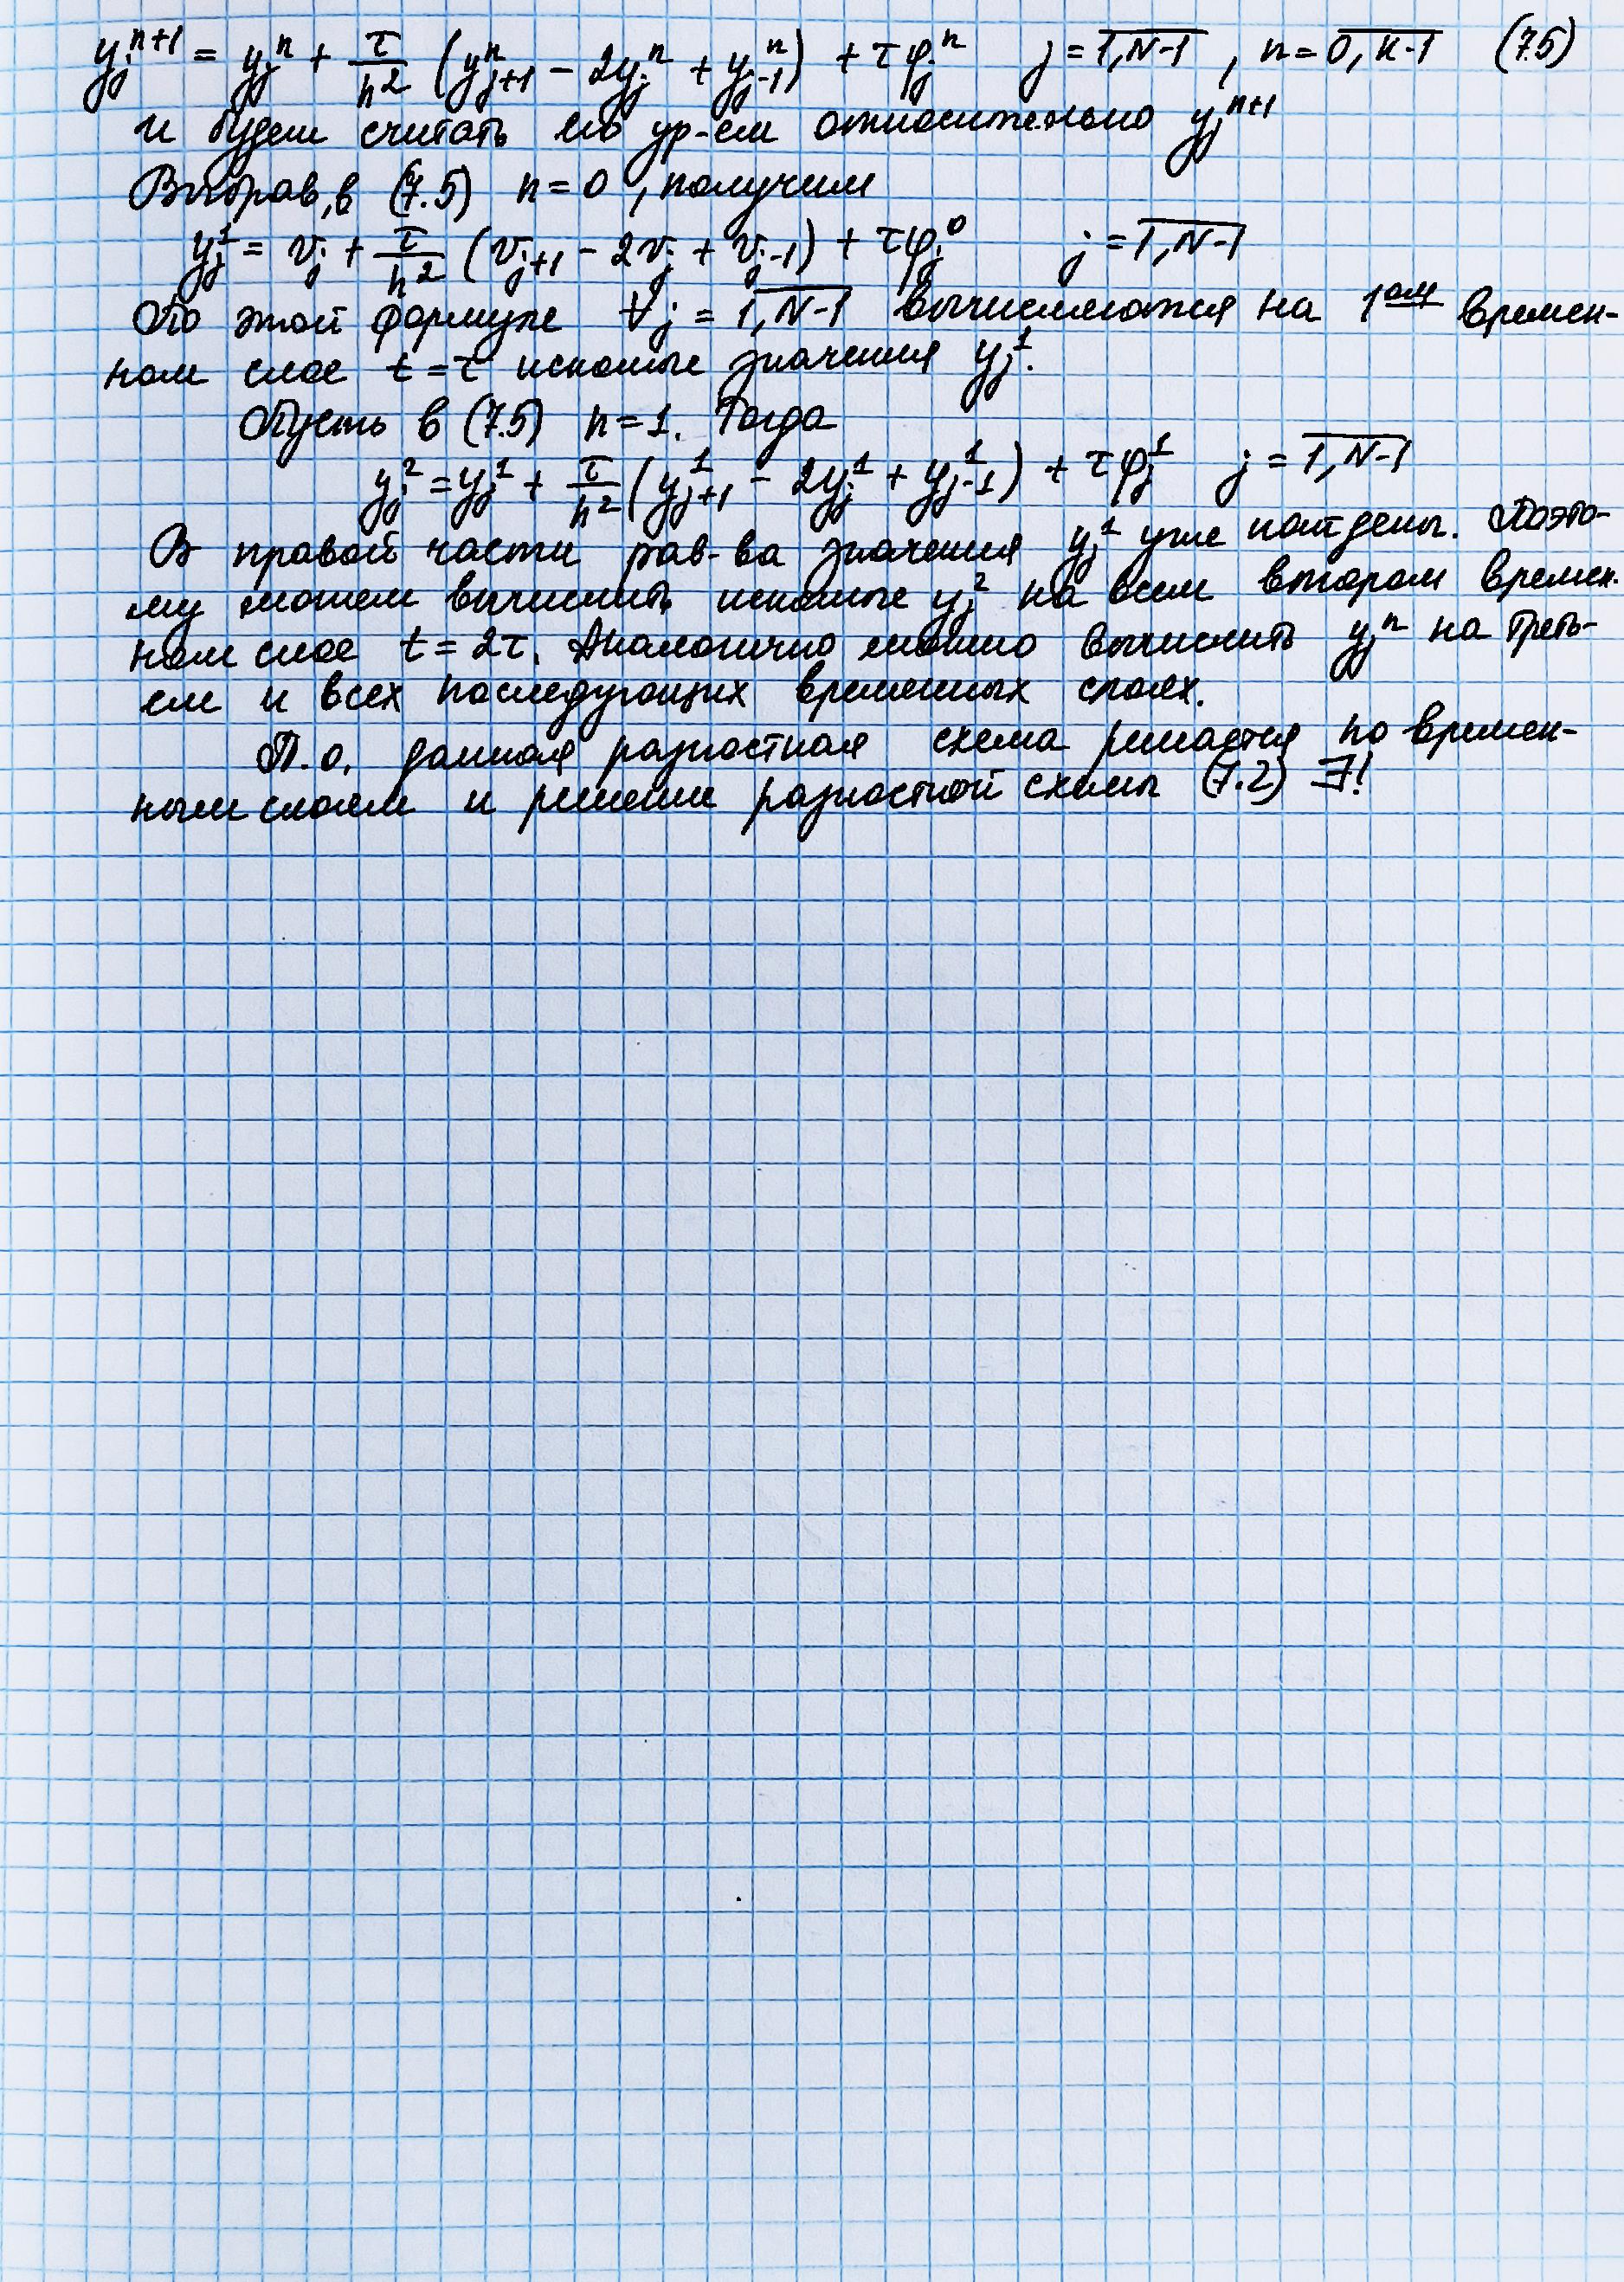 y_j^{n+1} = y_j^n + τ/h² (y_{j+1}^n − 2y_j^n + y_{j−1}^n) + τφ_j^n   j = \overline{1,N−1} , n = \overline{0,K−1}   (7.5)
и будем считать его ур-ем относительно y_j^{n+1}
Выбрав, в (7.5) n=0, получим
y_j^1 = v_j + τ/h² (v_{j+1} − 2v_j + v_{j−1}) + τφ_j^0   j = \overline{1,N−1}
По этой формуле ∀j = \overline{1,N−1} вычисляются на 1ом времен-
ном слое t=τ искомые значения y_j^1.
Пусть в (7.5) n=1. Тогда
y_j^2 = y_j^1 + τ/h² (y_{j+1}^1 − 2y_j^1 + y_{j−1}^1) + τφ_j^1   j = \overline{1,N−1}
В правой части рав-ва значения y_j^1 уже найдены. Поэто-
му можем вычислить искомые y_j^2 на всем втором времен.
ном слое t=2τ. Аналогично можно вычислить y_j^n на треть-
ем и всех последующих временных слоях.
Т.о. данная разностная схема решается по времен-
ным слоям и решение разностной схемы (7.2) ∃!